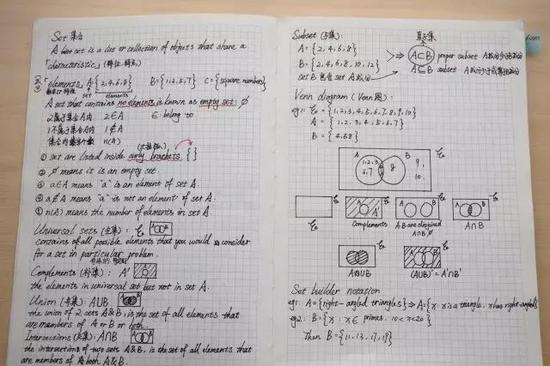 Set 集合
A set is a list or collection of objects that share a
characteristic. (特征, 特点)
elements A: {2,4,6,8} B= {1,2,5,7} C= {square numbers}
set elements
A set that contains no elements is known as empty set: Ø
2属于集合A内 2∈A ∈ belong to
1不属于集合A内 1∉A
n(A)
① set are listed inside curly brackets. { }
② Ø means it is an empty set.
③ a∈A means "a" is an element of set A.
④ a∉A means "a" is not an element of set A.
⑤ n(A) means the number of elements in set A.
Universal sets (全集):
contains of all possible elements that you would consider
for a set in particular problem.
Complements (补集): A'
the elements in universal set but not in set A.
Union (并集): A∪B
the union of 2 sets A&B, is the set of all elements that
are members of A or B or both.
Intersections (交集): A∩B
the intersections of two sets A&B, is the set of all elements that
are members of both A&B.
Subset (子集): 真子集
A= {2,4,6,8}
B= {2,4,6,8,10,12}
A⊂B proper subset
A⊆B subset
set B 包含 set A
Venn diagram (Venn图):
eg1: ξ= {1,2,3,4,5,6,7,8,9,10}
A= {1,2,3,4,5,6,7}
B= {4,5,8}
A B
1,2,3
6,7
8
9,
10.
ξ
A A'
Complements
A B
AB are disjoined
A∩B Ø
A B
A∩B
A∪B
(A∪B)'=A'∩B'
Set builder notation
eg1: A={right-angled triangles} ⇒ A={x: x is a triangle, x has right-angle}
eg2: B= {x: x∈ primes, 10<x<20}
Then B={11,13,17,19}